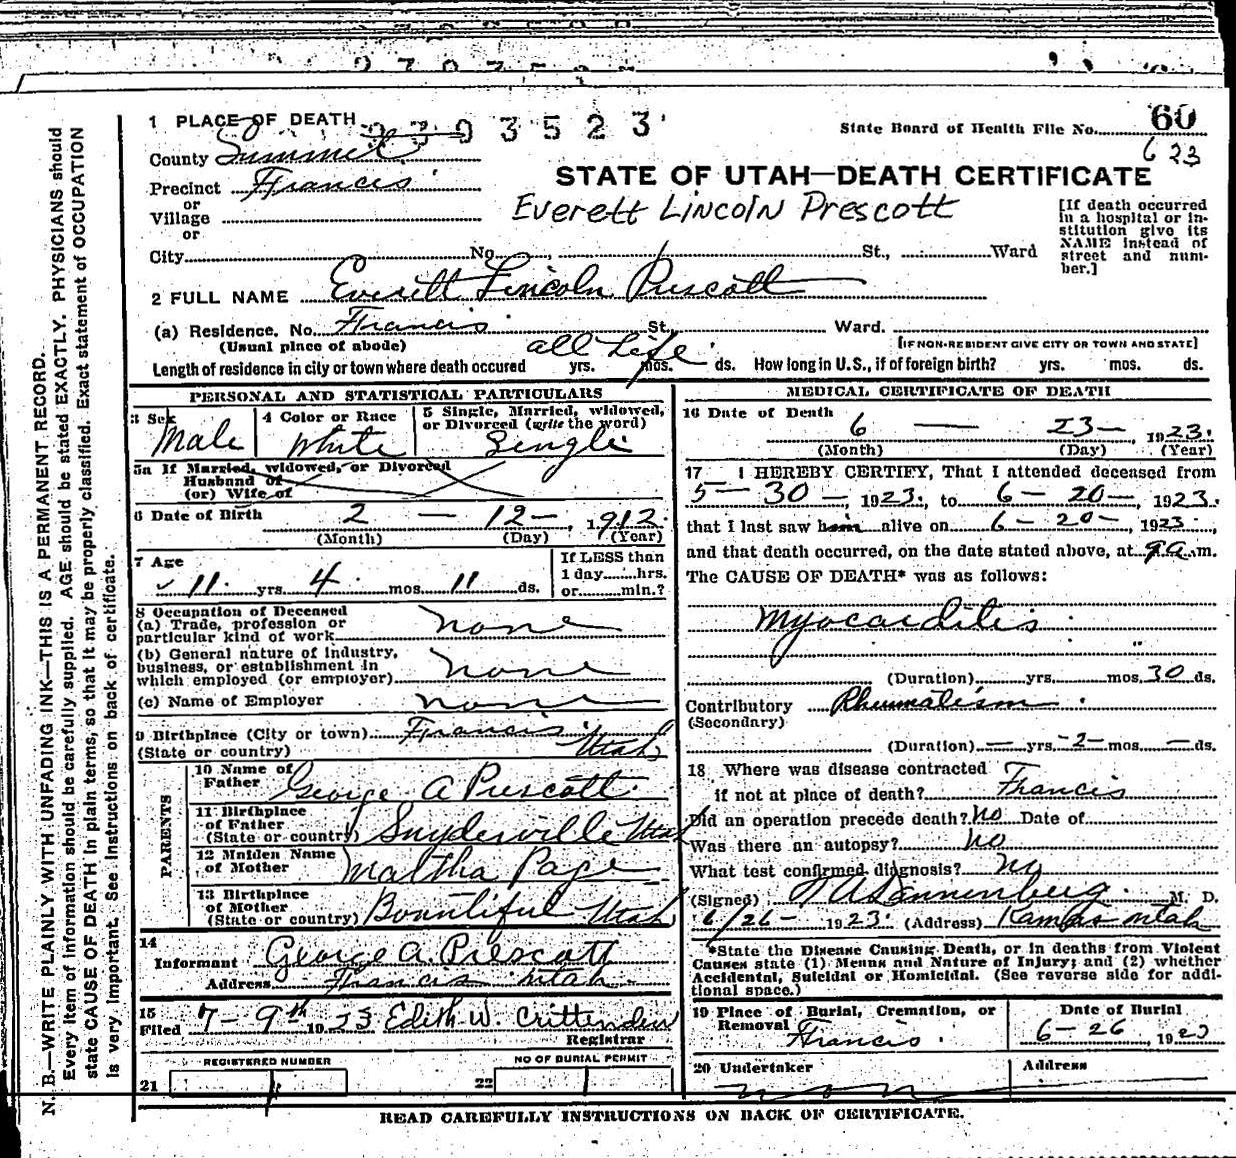 1 PLACE OF DEATH
3 5 2 3
State Board of Health File No. 60
623
County Summit
STATE OF UTAH—DEATH CERTIFICATE
Precinct Francis
or
Village
or
City No. St., Ward
Everett Lincoln Prescott
[If death occurred
in a hospital or in-
stitution give its
NAME instead of
street and num-
ber.]
2 FULL NAME Everett Lincoln Prescott
(a) Residence. No. Francis St. Ward.
(Usual place of abode)
[IF NON-RESIDENT GIVE CITY OR TOWN AND STATE]
all Life
Length of residence in city or town where death occured yrs. mos. ds. How long in U.S., if of foreign birth? yrs. mos. ds.
PERSONAL AND STATISTICAL PARTICULARS
3 Sex Male
4 Color or Race White
5 Single, Married, widowed,
or Divorced (write the word)
Single
5a If Married, widowed, or Divorced
Husband of
(or) Wife of
6 Date of Birth 2 — 12 —, 1912
(Month) (Day) (Year)
7 Age
11 yrs. 4 mos. 11 ds.
If LESS than
1 day........hrs.
or.........min.?
8 Occupation of Deceased
(a) Trade, profession or
particular kind of work none
(b) General nature of industry,
business, or establishment in
which employed (or employer) none
(c) Name of Employer none
9 Birthplace (City or town) Francis
(State or country) Utah
PARENTS
10 Name of
Father George A Prescott
11 Birthplace
of Father
(State or country) Snyderville Utah
12 Maiden Name
of Mother Martha Page
13 Birthplace
of Mother
(State or country) Bountiful Utah
14
Informant George A. Prescott
Address Francis Utah
15
Filed 7-9th 1923 Edith W. Crittenden
Registrar
REGISTERED NUMBER
21
NO OF BURIAL PERMIT
22
MEDICAL CERTIFICATE OF DEATH
16 Date of Death
6 — 23—, 1923.
(Month) (Day) (Year)
17 I HEREBY CERTIFY, That I attended deceased from
5—30—, 1923, to 6—20—, 1923.
that I last saw him alive on 6—20—, 1923,
and that death occurred, on the date stated above, at 9 a. m.
The CAUSE OF DEATH* was as follows:
Myocarditis
(Duration) yrs. mos. 30 ds.
Contributory Rheumatism
(Secondary)
(Duration) — yrs. 2 mos. — ds.
18 Where was disease contracted
if not at place of death? Francis
Did an operation precede death? No Date of
Was there an autopsy? No
What test confirmed diagnosis? No
(Signed) Dannenberg M. D.
6/26- 1923 (Address) Kamas Utah
*State the Disease Causing Death, or in deaths from Violent
Causes state (1) Means and Nature of Injury; and (2) whether
Accidental, Suicidal or Homicidal. (See reverse side for addi-
tional space.)
19 Place of Burial, Cremation, or
Removal Francis
Date of Burial
6-26, 1923
20 Undertaker
Address
READ CAREFULLY INSTRUCTIONS ON BACK OF CERTIFICATE.
N. B.—WRITE PLAINLY WITH UNFADING INK—THIS IS A PERMANENT RECORD.
Every item of information should be carefully supplied. AGE should be stated EXACTLY. PHYSICIANS should
state CAUSE OF DEATH in plain terms, so that it may be properly classified. Exact statement of OCCUPATION
is very important. See instructions on back of certificate.